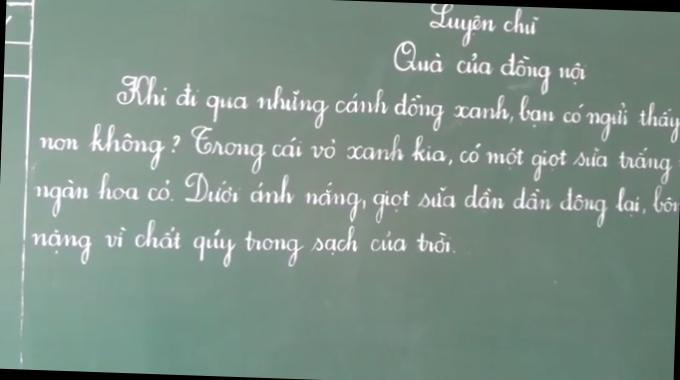 Luyện chữ
Quà của đồng nội
Khi đi qua những cánh đồng xanh, bạn có ngửi thấy
non không? Trong cái vỏ xanh kia, có một giọt sữa trắng
ngàn hoa cỏ. Dưới ánh nắng, giọt sữa dần dần đông lại, bôn
nặng vì chất quý trong sạch của trời.